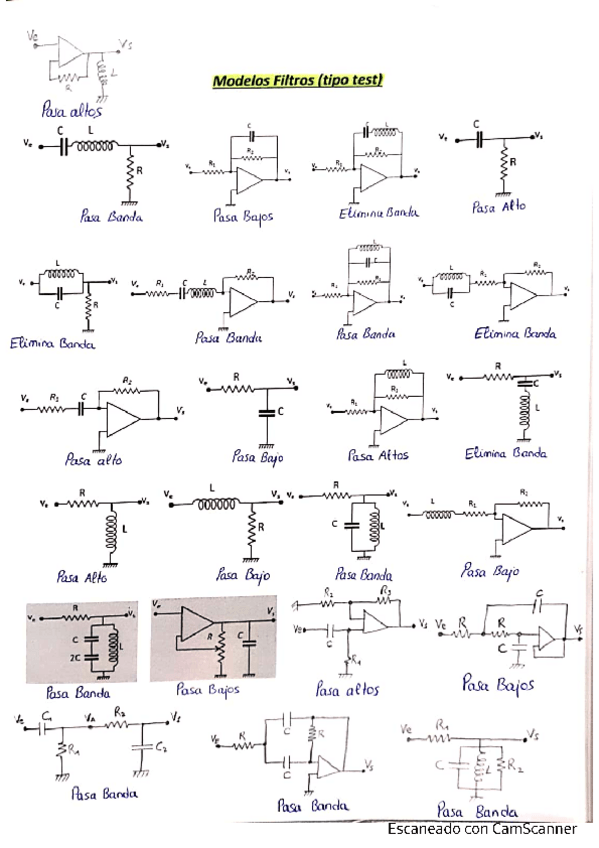 Ve
Vs
R
L
Pasa altos
Modelos Filtros (tipo test)
Ve C L Vs
R
Pasa Banda
C
R2
R1
Ve
Vs
Pasa Bajos
C L
R2
R1
Ve
Vs
Elimina Banda
Ve C Vs
R
Pasa Alto
L
Ve Vs
C R
Elimina Banda
Ve R1 C L R2 Vs
Pasa Banda
L
C
R2
R1
Vs
Pasa Banda
L
C
R1 R2
Ve
Vs
Elimina Banda
R2
Ve R1 C
Vs
Pasa alto
Ve R Vs
C
Pasa Bajo
L
R2
Ve R1
Vs
Pasa Altos
Ve R Vs
C
L
Elimina Banda
Ve R Vs
L
Pasa Alto
Ve L Vs
R
Pasa Bajo
Ve R Vs
C L
Pasa Banda
Ve L R1 R2
Vs
Pasa Bajo
Ve R Vs
C
2C
L
Pasa Banda
Ve Vs
R C
Pasa Bajos
R2 R3
Ve C Vs
R1
Pasa altos
Ve R R C
C
Vs
Pasa Bajos
Ve C1 VA R2 Vs
R1 C2
Pasa Banda
Ve R C R
C
Vs
Pasa Banda
Ve R1 Vs
C L R2
Pasa Banda
Escaneado con CamScanner